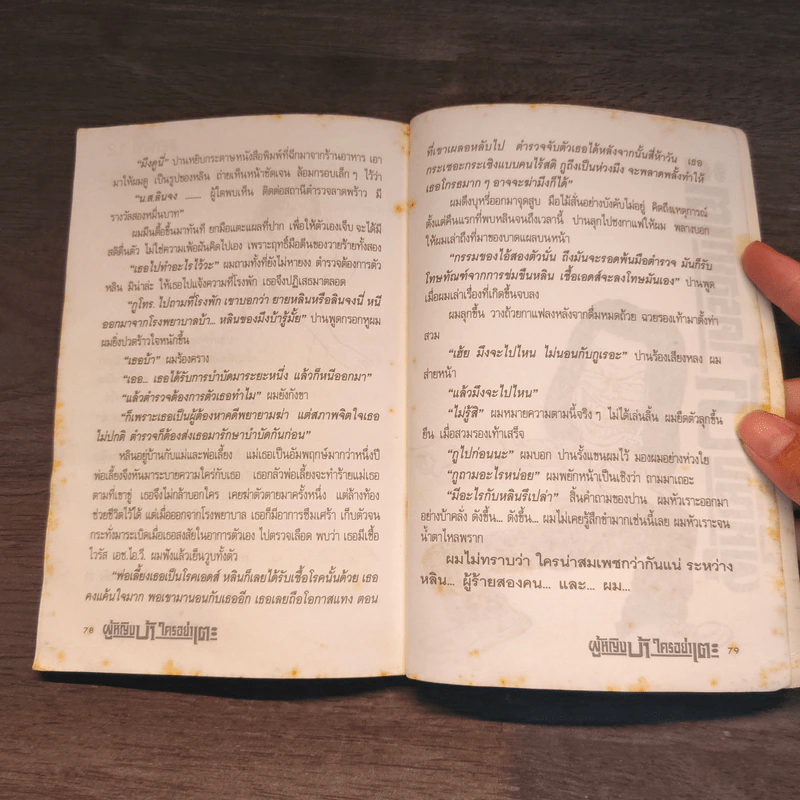 "มึงดูนี่" ปานหยิบกระดาษหนังสือพิมพ์ที่ฉีกมาจากร้านอาหาร เอา
มาให้ผมดู เป็นรูปของหลิน ถ่ายเห็นหน้าชัดเจน ล้อมกรอบเล็ก ๆ ไว้ว่า
"น.ส.ลินจง —— ผู้ใดพบเห็น ติดต่อสถานีตำรวจลาดพร้าว มี
รางวัลสองหมื่นบาท"
ผมมึนตื้อขึ้นมาทันที ยกมือแตะแผลที่ปาก เพื่อให้ตัวเองเจ็บ จะได้มี
สติตื่นตัว ไม่ใช่ความเพ้อฝันคิดไปเอง เพราะฤทธิ์มือตีนของวายร้ายทั้งสอง
"เธอไปทำอะไรไว้วะ" ผมถามทั้งที่ยังไม่หายงง ตำรวจต้องการตัว
หลิน มิน่าล่ะ ให้เธอไปแจ้งความที่โรงพัก เธอจึงปฏิเสธมาตลอด
"กูโทร. ไปถามที่โรงพัก เขาบอกว่า ยายหลินหรือลินจงนี่ หนี
ออกมาจากโรงพยาบาลบ้า... หลินของมึงบ้ารู้มั้ย" ปานพูดกรอกหูผม
ผมยิ่งปวดร้าวใจหนักขึ้น
"เธอบ้า" ผมร้องคราง
"เออ... เธอได้รับการบำบัดมาระยะหนึ่ง แล้วก็หนีออกมา"
"แล้วตำรวจต้องการตัวเธอทำไม" ผมยังกังขา
"ก็เพราะเธอเป็นผู้ต้องหาคดีพยายามฆ่า แต่สภาพจิตใจเธอ
ไม่ปกติ ตำรวจก็ต้องส่งเธอมารักษาบำบัดกันก่อน"
หลินอยู่บ้านกับแม่และพ่อเลี้ยง แม่เธอเป็นอัมพฤกษ์มากว่าหนึ่งปี
พ่อเลี้ยงจึงหันมาระบายความใคร่กับเธอ เธอกลัวพ่อเลี้ยงจะทำร้ายแม่เธอ
ตามที่เขาขู่ เธอจึงไม่กล้าบอกใคร เคยฆ่าตัวตายมาครั้งหนึ่ง แต่ล้างท้อง
ช่วยชีวิตไว้ได้ แต่เมื่อออกจากโรงพยาบาล เธอก็มีอาการซึมเศร้า เก็บตัวจน
กระทั่งมาระเบิดเมื่อเธอสงสัยในอาการตัวเอง ไปตรวจเลือด พบว่า เธอมีเชื้อ
ไวรัส เอช.ไอ.วี. ผมฟังแล้วเย็นวูบทั้งตัว
"พ่อเลี้ยงเธอเป็นโรคเอดส์ หลินก็เลยได้รับเชื้อโรคนั้นด้วย เธอ
คงแค้นใจมาก พอเขามานอนกับเธออีก เธอเลยถือโอกาสแทง ตอน
78 ผู้หญิงบ้า ใครอย่าแตะ
ที่เขาเผลอหลับไป ตำรวจจับตัวเธอได้หลังจากนั้นสี่ห้าวัน เธอ
กระเซอะกระเซิงแบบคนไร้สติ กูถึงเป็นห่วงมึง จะพลาดพลั้งทำให้
เธอโกรธมาก ๆ อาจจะฆ่ามึงก็ได้"
ผมดึงบุหรี่ออกมาจุดสูบ มือไม้สั่นอย่างบังคับไม่อยู่ คิดถึงเหตุการณ์
ตั้งแต่คืนแรกที่พบหลินจนถึงเวลานี้ ปานลุกไปชงกาแฟให้ผม พลางบอก
ให้ผมเล่าถึงที่มาของบาดแผลบนหน้า
"กรรมของไอ้สองตัวนั้น ถึงมันจะรอดพ้นมือตำรวจ มันก็รับ
โทษทัณฑ์จากการข่มขืนหลิน เชื้อเอดส์จะลงโทษมันเอง" ปานพูด
เมื่อผมเล่าเรื่องที่เกิดขึ้นจบลง
ผมลุกขึ้น วางถ้วยกาแฟลงหลังจากดื่มหมดถ้วย ฉวยรองเท้ามาตั้งท่า
สวม
"เฮ้ย มึงจะไปไหน ไม่นอนกับกูเรอะ" ปานร้องเสียงหลง ผม
ส่ายหน้า
"แล้วมึงจะไปไหน"
"ไม่รู้สิ" ผมหมายความตามนี้จริง ๆ ไม่ได้เล่นลิ้น ผมยืดตัวลุกขึ้น
ยืน เมื่อสวมรองเท้าเสร็จ
"กูไปก่อนนะ" ผมบอก ปานรั้งแขนผมไว้ มองผมอย่างห่วงใย
"กูถามอะไรหน่อย" ผมพยักหน้าเป็นเชิงว่า ถามมาเถอะ
"มีอะไรกับหลินรึเปล่า" สิ้นคำถามของปาน ผมหัวเราะออกมา
อย่างบ้าคลั่ง ดังขึ้น... ดังขึ้น... ผมไม่เคยรู้สึกขำมากเช่นนี้เลย ผมหัวเราะจน
น้ำตาไหลพราก
ผมไม่ทราบว่า ใครน่าสมเพชกว่ากันแน่ ระหว่าง
หลิน... ผู้ร้ายสองคน... และ... ผม...
ผู้หญิงบ้า ใครอย่าแตะ 79